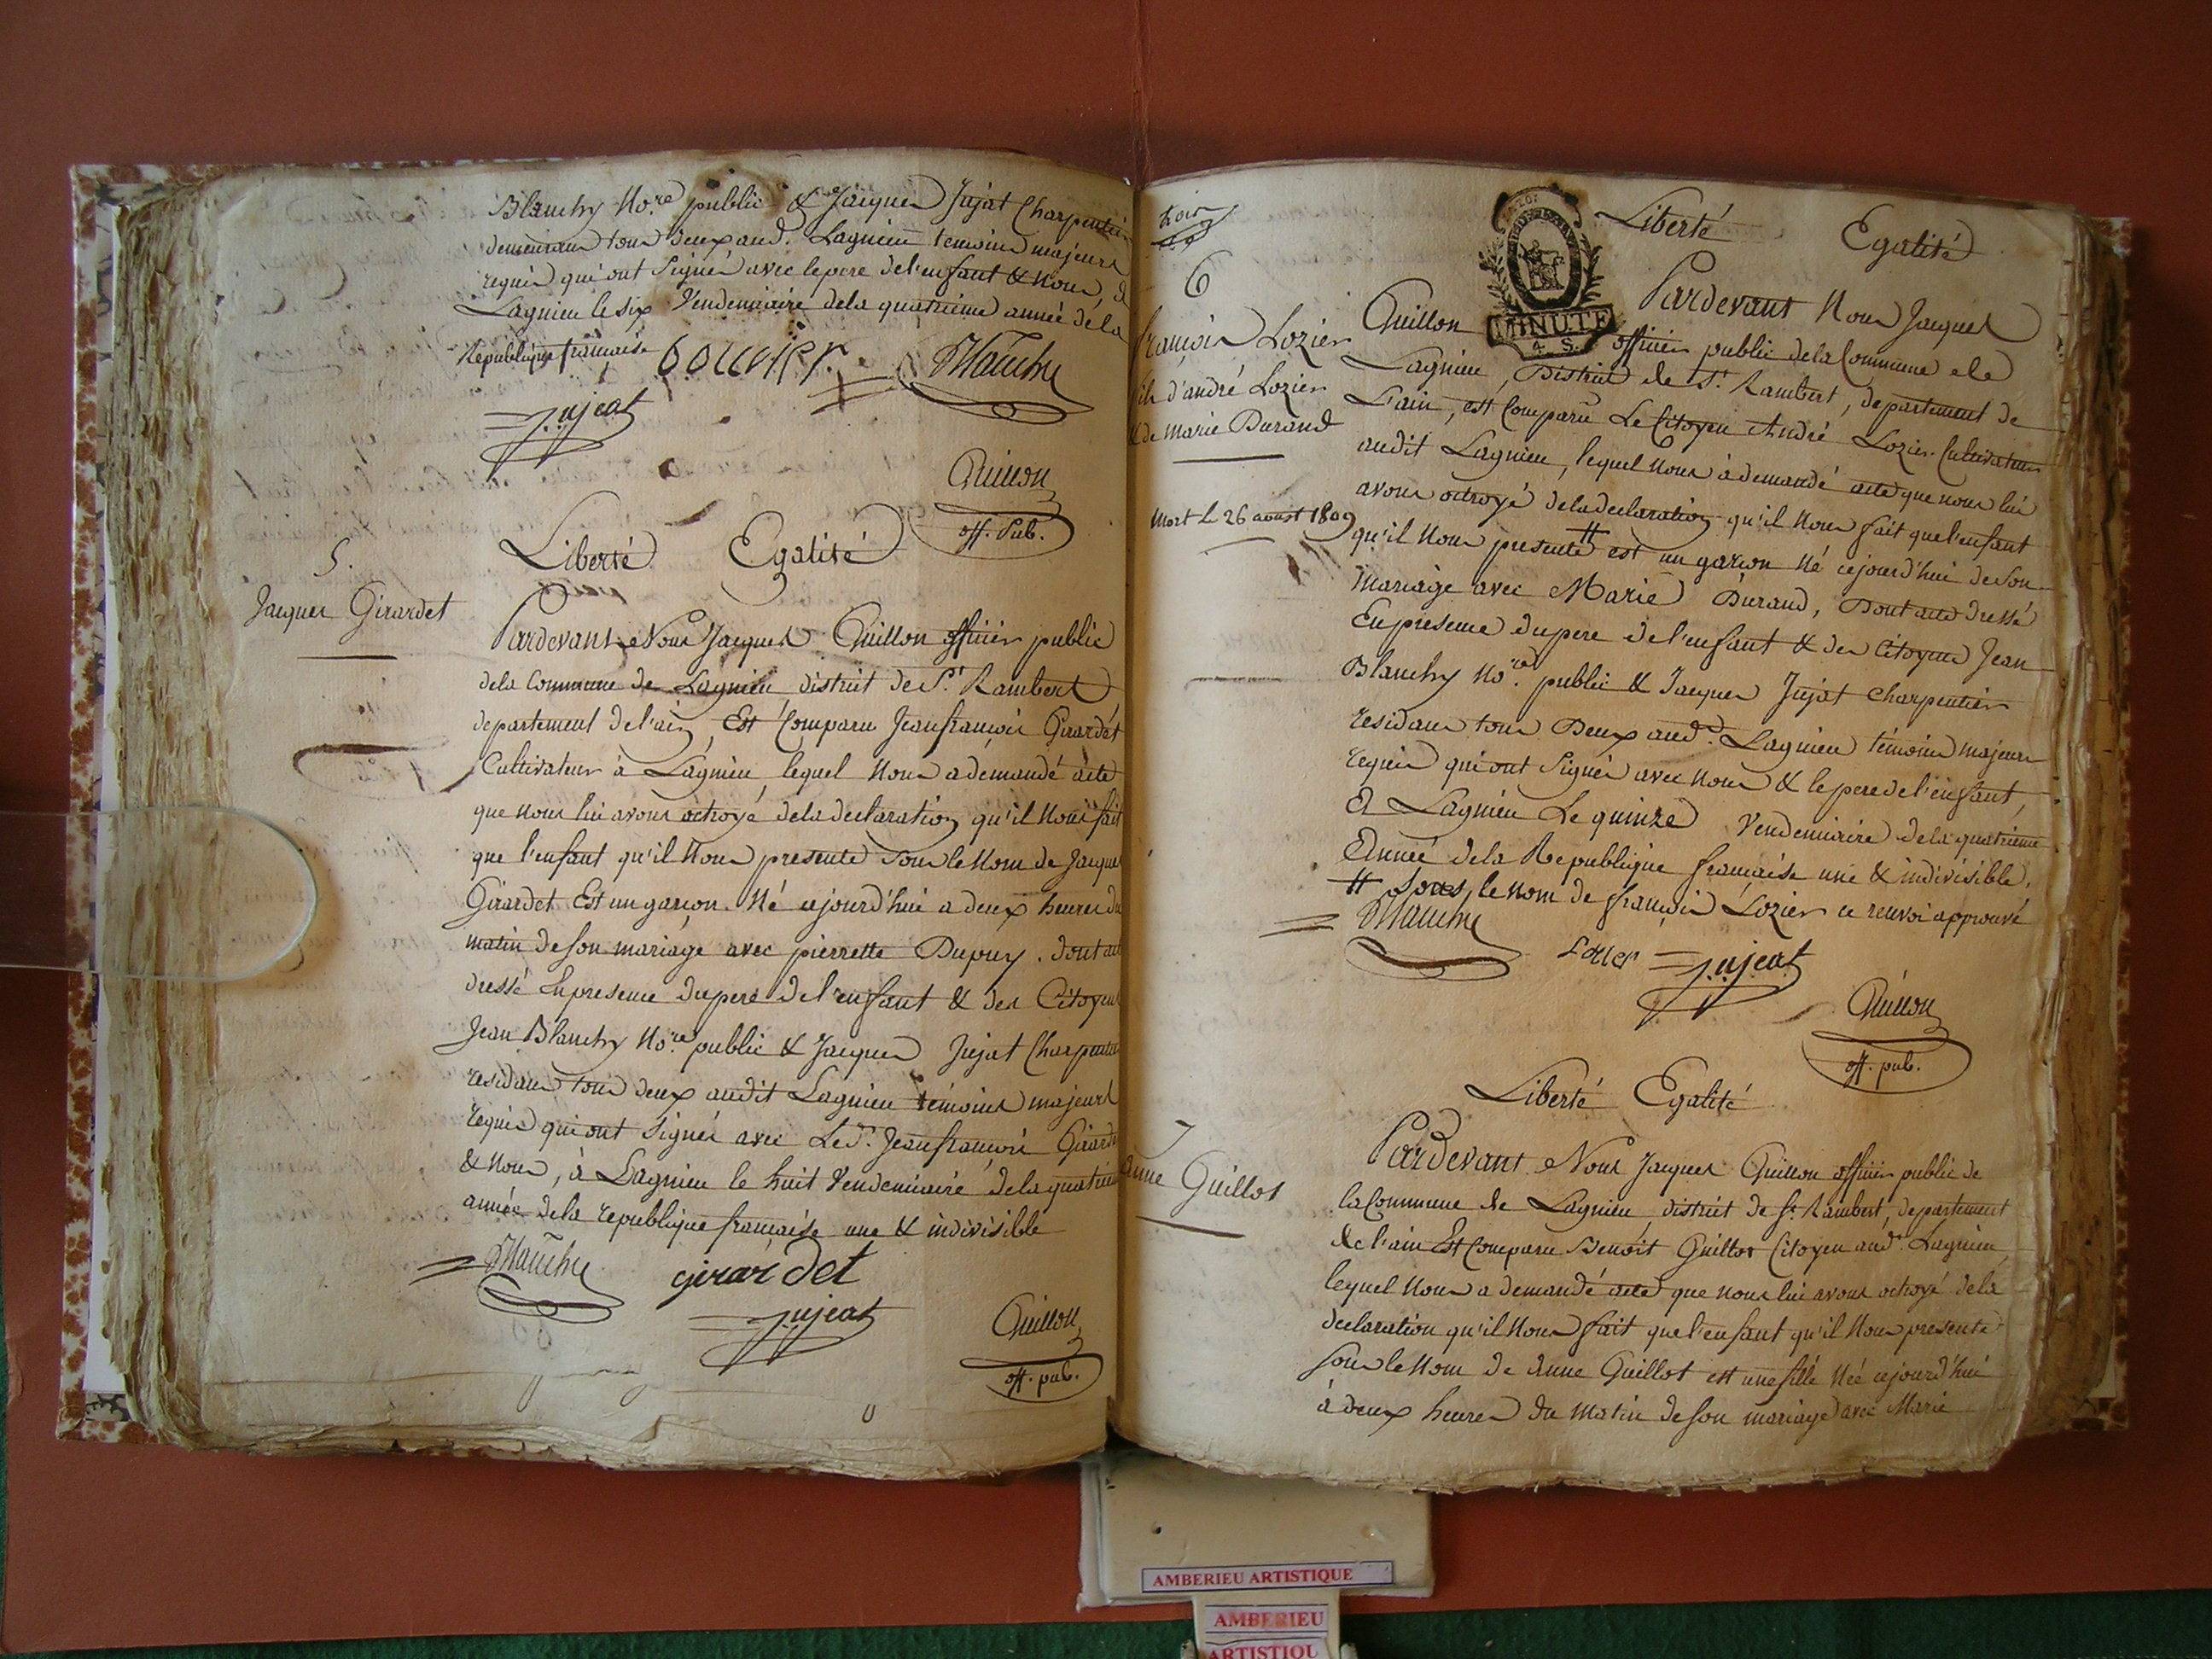 Blanchy No.re public & Jacques Jujat Charpentier
demeurans tous deux aud. Lagnieu temoins majeurs
requis qui ont signés avec le pere de l'enfant & nous, à
Lagnieu le six Vendemiaire dela quatrieme année dela
Republique française
bouvier
Blanchy
Jujeat
Guillon
off. Pub.
5.
Jacques Girardet
Liberté Egalité
Pardevant Nous Jacques Guillon officier public
dela Commune de Lagnieu district de St. Rambert
departement de l'ain, Est Comparu Jean françois Girardet
Cultivateur à Lagnieu, lequel Nous a demandé acte
que nous lui avons octroyé dela declaration qu'il Nous fait
que l'enfant qu'il Nous presente sous le Nom de Jacques
Girardet Est un garçon Né cejourd'hui a deux heures du
matin de son mariage avec pierrette Dupuy. dont acte
dressé En presence du pere de l'enfant & des Citoyens
Jean Blanchy No.re public & Jacques Jujat Charpentier
residans tous deux audit Lagnieu témoins majeurs
requis qui ont signés avec Led. Jean françois Girardet
& Nous, à Lagnieu le huit Vendemiaire dela quatrieme
année dela republique française une & indivisible
Blanchy
girardet
Jujeat
Guillon
off. pub.
6
françois Lozier
fils d'andré Lozier
& de Marie Durand
Mort L 26 aoust 1809
MINUTE
4. S.
Liberté Egalité
Pardevant Nous Jacques
Guillon officier public dela Commune de
Lagnieu, District de St. Rambert, departement de
L'ain, est Comparu Le Citoyen André Lozier Cultivateur
audit Lagnieu, lequel Nous à demandé acte que nous lui
avons octroyé dela declaration qu'il Nous fait que l'enfant
qu'il Nous presente # est un garçon Né cejourd'hui de son
mariage avec Marie Durand, Dont acte dressé
En presence du pere de l'enfant & des Citoyens Jean
Blanchy No.re public & Jacques Jujat Charpentier
residans tous Deux aud. Lagnieu témoins majeurs
requis qui ont signés avec Nous & le pere de l'enfant,
A Lagnieu Le quinze Vendemiaire dela quatrieme
Année dela Republique française une & indivisible.
# sous le nom de françois Lozier ce renvoi approuvé
Blanchy
Jujeat
Guillon
off. pub.
Liberté Egalité
7
Anne Guillot
Pardevant Nous Jacques Guillon officier public de
la Commune de Lagnieu, district de St. Rambert, departement
de l'ain Est Comparu Benoit Guillot Citoyen aud. Lagnieu,
lequel Nous a demandé acte que nous lui avons octroyé dela
declaration qu'il Nous fait que l'enfant qu'il Nous presente
sous le Nom de Anne Guillot est une fille Née cejourd'hui
à deux heures du Matin de son mariage avec Marie
AMBERIEU ARTISTIQUE
AMBERIEU
ARTISTIQU